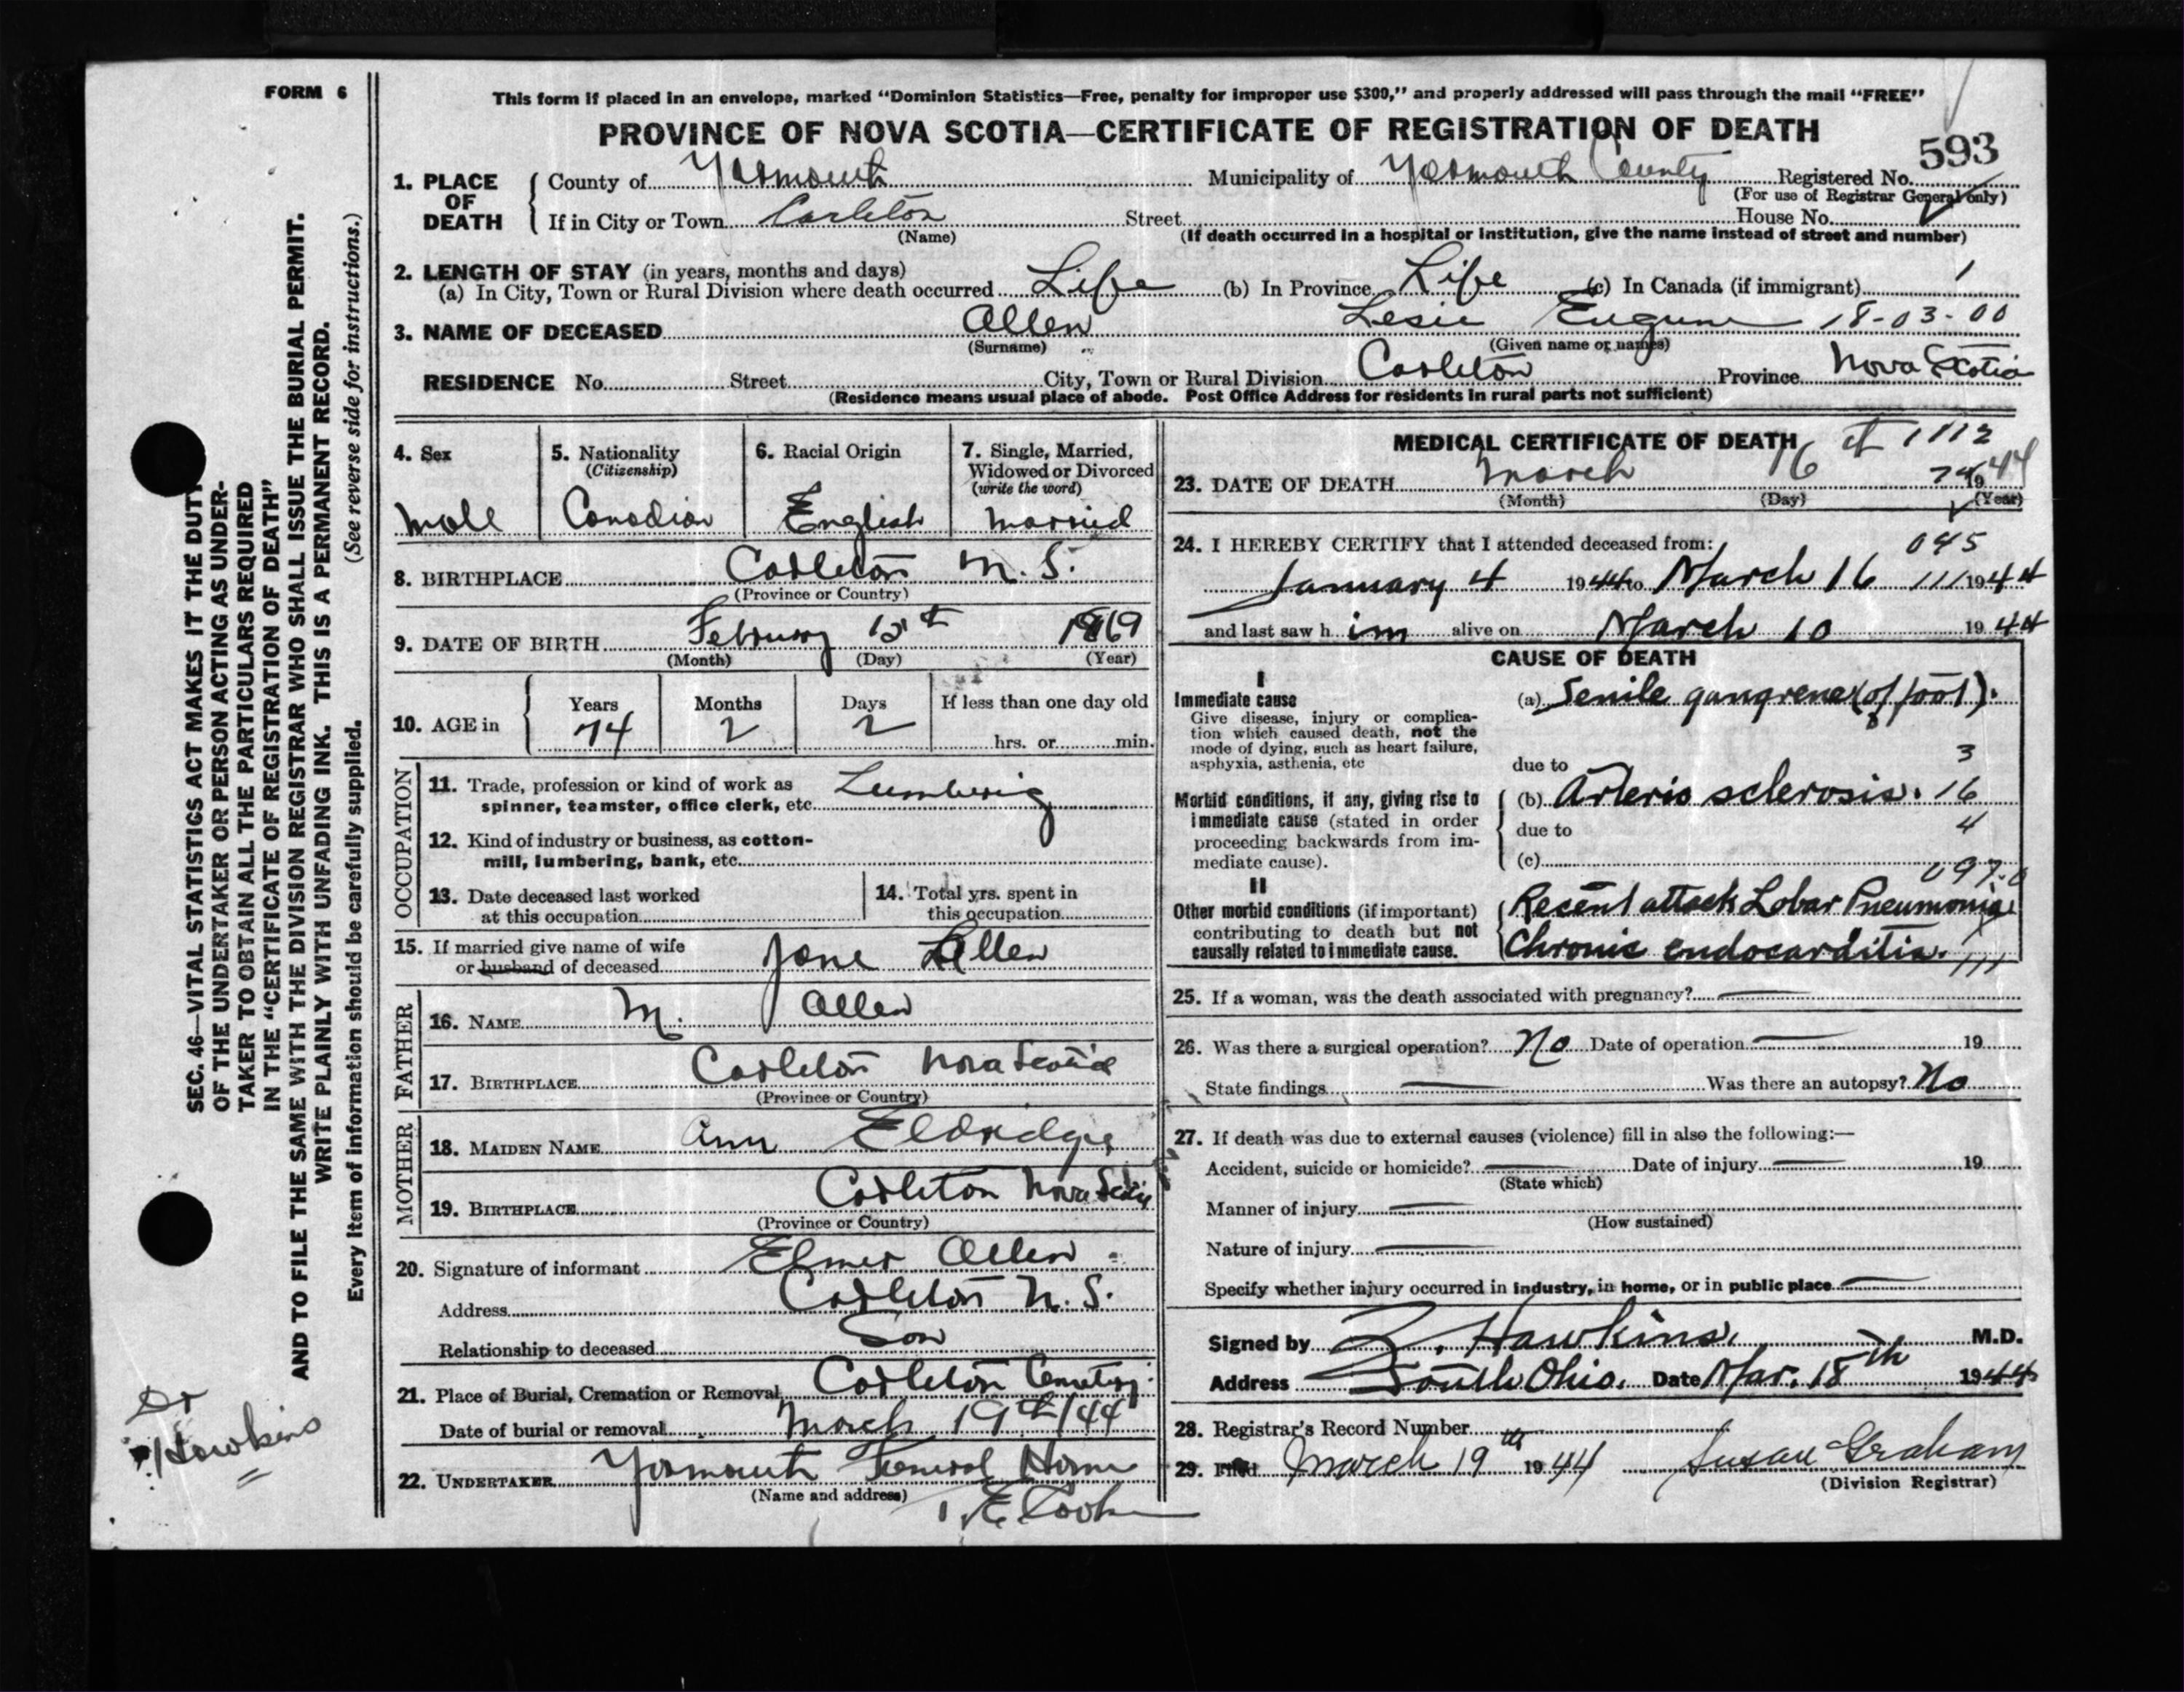 FORM 6
This form if placed in an envelope, marked "Dominion Statistics—Free, penalty for improper use $300," and properly addressed will pass through the mail "FREE"
PROVINCE OF NOVA SCOTIA—CERTIFICATE OF REGISTRATION OF DEATH
593
1. PLACE OF DEATH
County of Yarmouth Municipality of Yarmouth County Registered No.
(For use of Registrar General only)
If in City or Town Carleton Street House No.
(Name) (If death occurred in a hospital or institution, give the name instead of street and number)
2. LENGTH OF STAY (in years, months and days)
(a) In City, Town or Rural Division where death occurred Life (b) In Province Life (c) In Canada (if immigrant) 1
3. NAME OF DECEASED Allen Lesie Eugune 18-03-00
(Surname) (Given name or names)
RESIDENCE No. Street City, Town or Rural Division Carleton Province Nova Scotia
(Residence means usual place of abode. Post Office Address for residents in rural parts not sufficient)
4. Sex
Male
5. Nationality
(Citizenship)
Canadian
6. Racial Origin
English
7. Single, Married,
Widowed or Divorced
(write the word)
Married
8. BIRTHPLACE Carleton N. S.
(Province or Country)
9. DATE OF BIRTH February 1869
(Month) (Day) (Year)
10. AGE in
Years Months Days If less than one day old
74 2 2 hrs. or min.
OCCUPATION
11. Trade, profession or kind of work as
spinner, teamster, office clerk, etc. Lumberig
12. Kind of industry or business, as cotton-
mill, lumbering, bank, etc.
13. Date deceased last worked
at this occupation
14. Total yrs. spent in
this occupation
15. If married give name of wife
or husband of deceased Jane Allen
FATHER
16. NAME M. Allen
17. BIRTHPLACE Carleton Nova Scotia
(Province or Country)
MOTHER
18. MAIDEN NAME Ann Eldridge
19. BIRTHPLACE Carleton Nova Scotia
(Province or Country)
20. Signature of informant Elmer Allen
Address Carleton N. S.
Relationship to deceased Son
21. Place of Burial, Cremation or Removal Carleton Cemetery
Date of burial or removal March 19th/44
22. UNDERTAKER Yarmouth Funeral Home
(Name and address)
E Cook
MEDICAL CERTIFICATE OF DEATH
1112
23. DATE OF DEATH March 16 1944
(Month) (Day) (Year)
24. I HEREBY CERTIFY that I attended deceased from: 045
January 4 1944 to March 16 111 1944
and last saw him alive on March 10 1944
CAUSE OF DEATH
I
Immediate cause
Give disease, injury or complica-
tion which caused death, not the
mode of dying, such as heart failure,
asphyxia, asthenia, etc
(a) Senile gangrene (of foot).
due to 3
Morbid conditions, if any, giving rise to
immediate cause (stated in order
proceeding backwards from im-
mediate cause).
(b) Arterio sclerosis. 16
due to 4
(c)
097.0
II
Other morbid conditions (if important)
contributing to death but not
causally related to immediate cause.
Recent attack Lobar Pneumonia
Chronic endocarditis. 111
25. If a woman, was the death associated with pregnancy? —
26. Was there a surgical operation? No Date of operation — 19
State findings — Was there an autopsy? No
27. If death was due to external causes (violence) fill in also the following:—
Accident, suicide or homicide? — Date of injury — 19
(State which)
Manner of injury —
(How sustained)
Nature of injury —
Specify whether injury occurred in industry, in home, or in public place —
Signed by Z. Hawkins. M.D.
Address South Ohio. Date Mar. 18th 1944
28. Registrar's Record Number
29. Filed March 19th 1944 Susan Graham
(Division Registrar)
SEC. 46—VITAL STATISTICS ACT MAKES IT THE DUTY
OF THE UNDERTAKER OR PERSON ACTING AS UNDER-
TAKER TO OBTAIN ALL THE PARTICULARS REQUIRED
IN THE "CERTIFICATE OF REGISTRATION OF DEATH"
AND TO FILE THE SAME WITH THE DIVISION REGISTRAR WHO SHALL ISSUE THE BURIAL PERMIT.
WRITE PLAINLY WITH UNFADING INK. THIS IS A PERMANENT RECORD.
Every item of information should be carefully supplied. (See reverse side for instructions.)
Dr
Hawkins